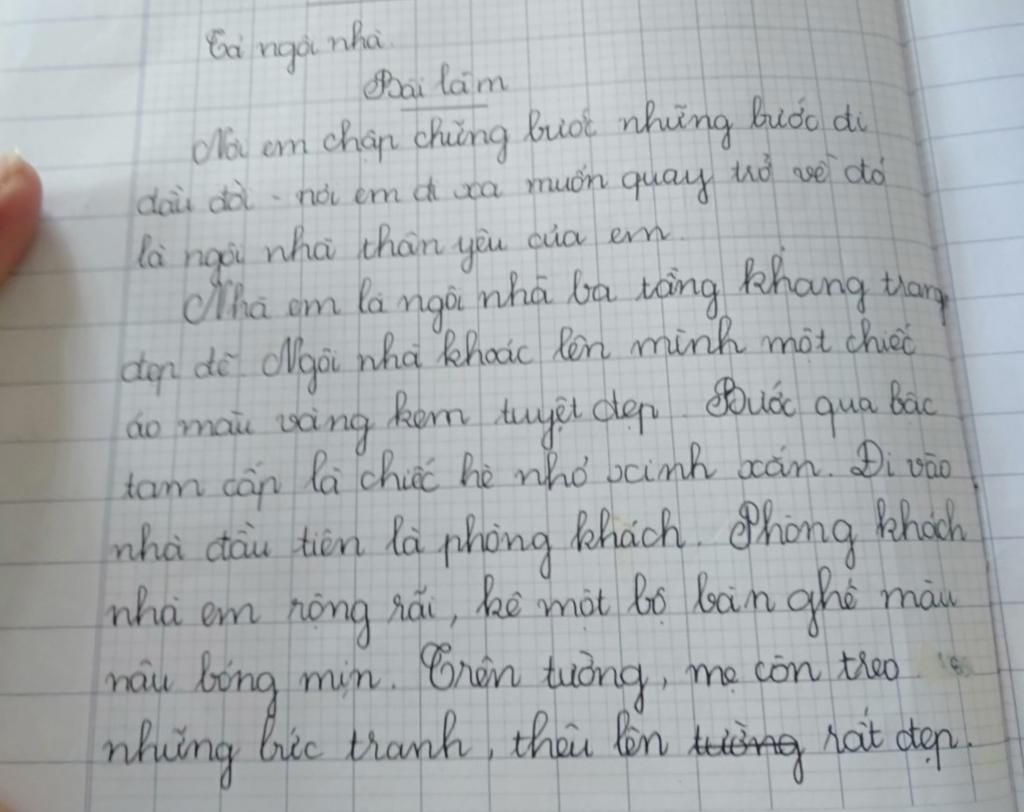 Tả ngôi nhà.
Bài làm
Nơi em chập chững bước những bước đi
đầu đời - nơi em đi xa muốn quay trở về đó
là ngôi nhà thân yêu của em.
Nhà em là ngôi nhà ba tầng khang trang
đẹp đẽ. Ngôi nhà khoác lên mình một chiếc
áo màu vàng kem tuyệt đẹp. Bước qua bậc
tam cấp là chiếc hè nhỏ xinh xắn. Đi vào
nhà đầu tiên là phòng khách. Phòng khách
nhà em rộng rãi, kê một bộ bàn ghế màu
nâu bóng mịn. Trên tường, mẹ còn treo
những bức tranh, thêu lên tường rất đẹp.